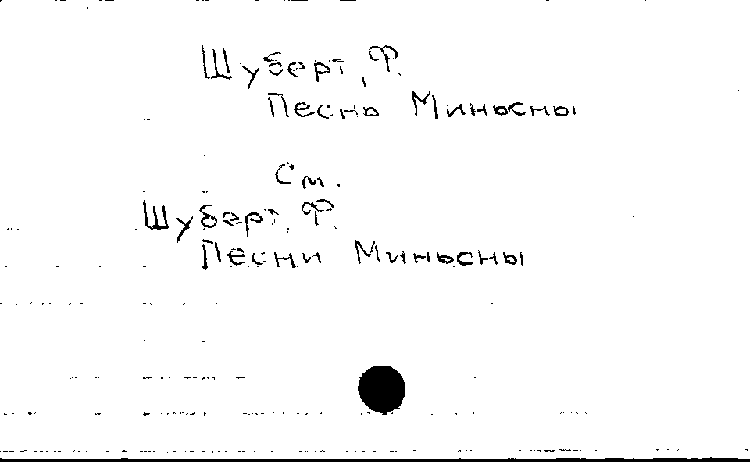 Шуберт, Ф.
Песнь Миньоны
См.
Шуберт, Ф.
Песни Миньоны